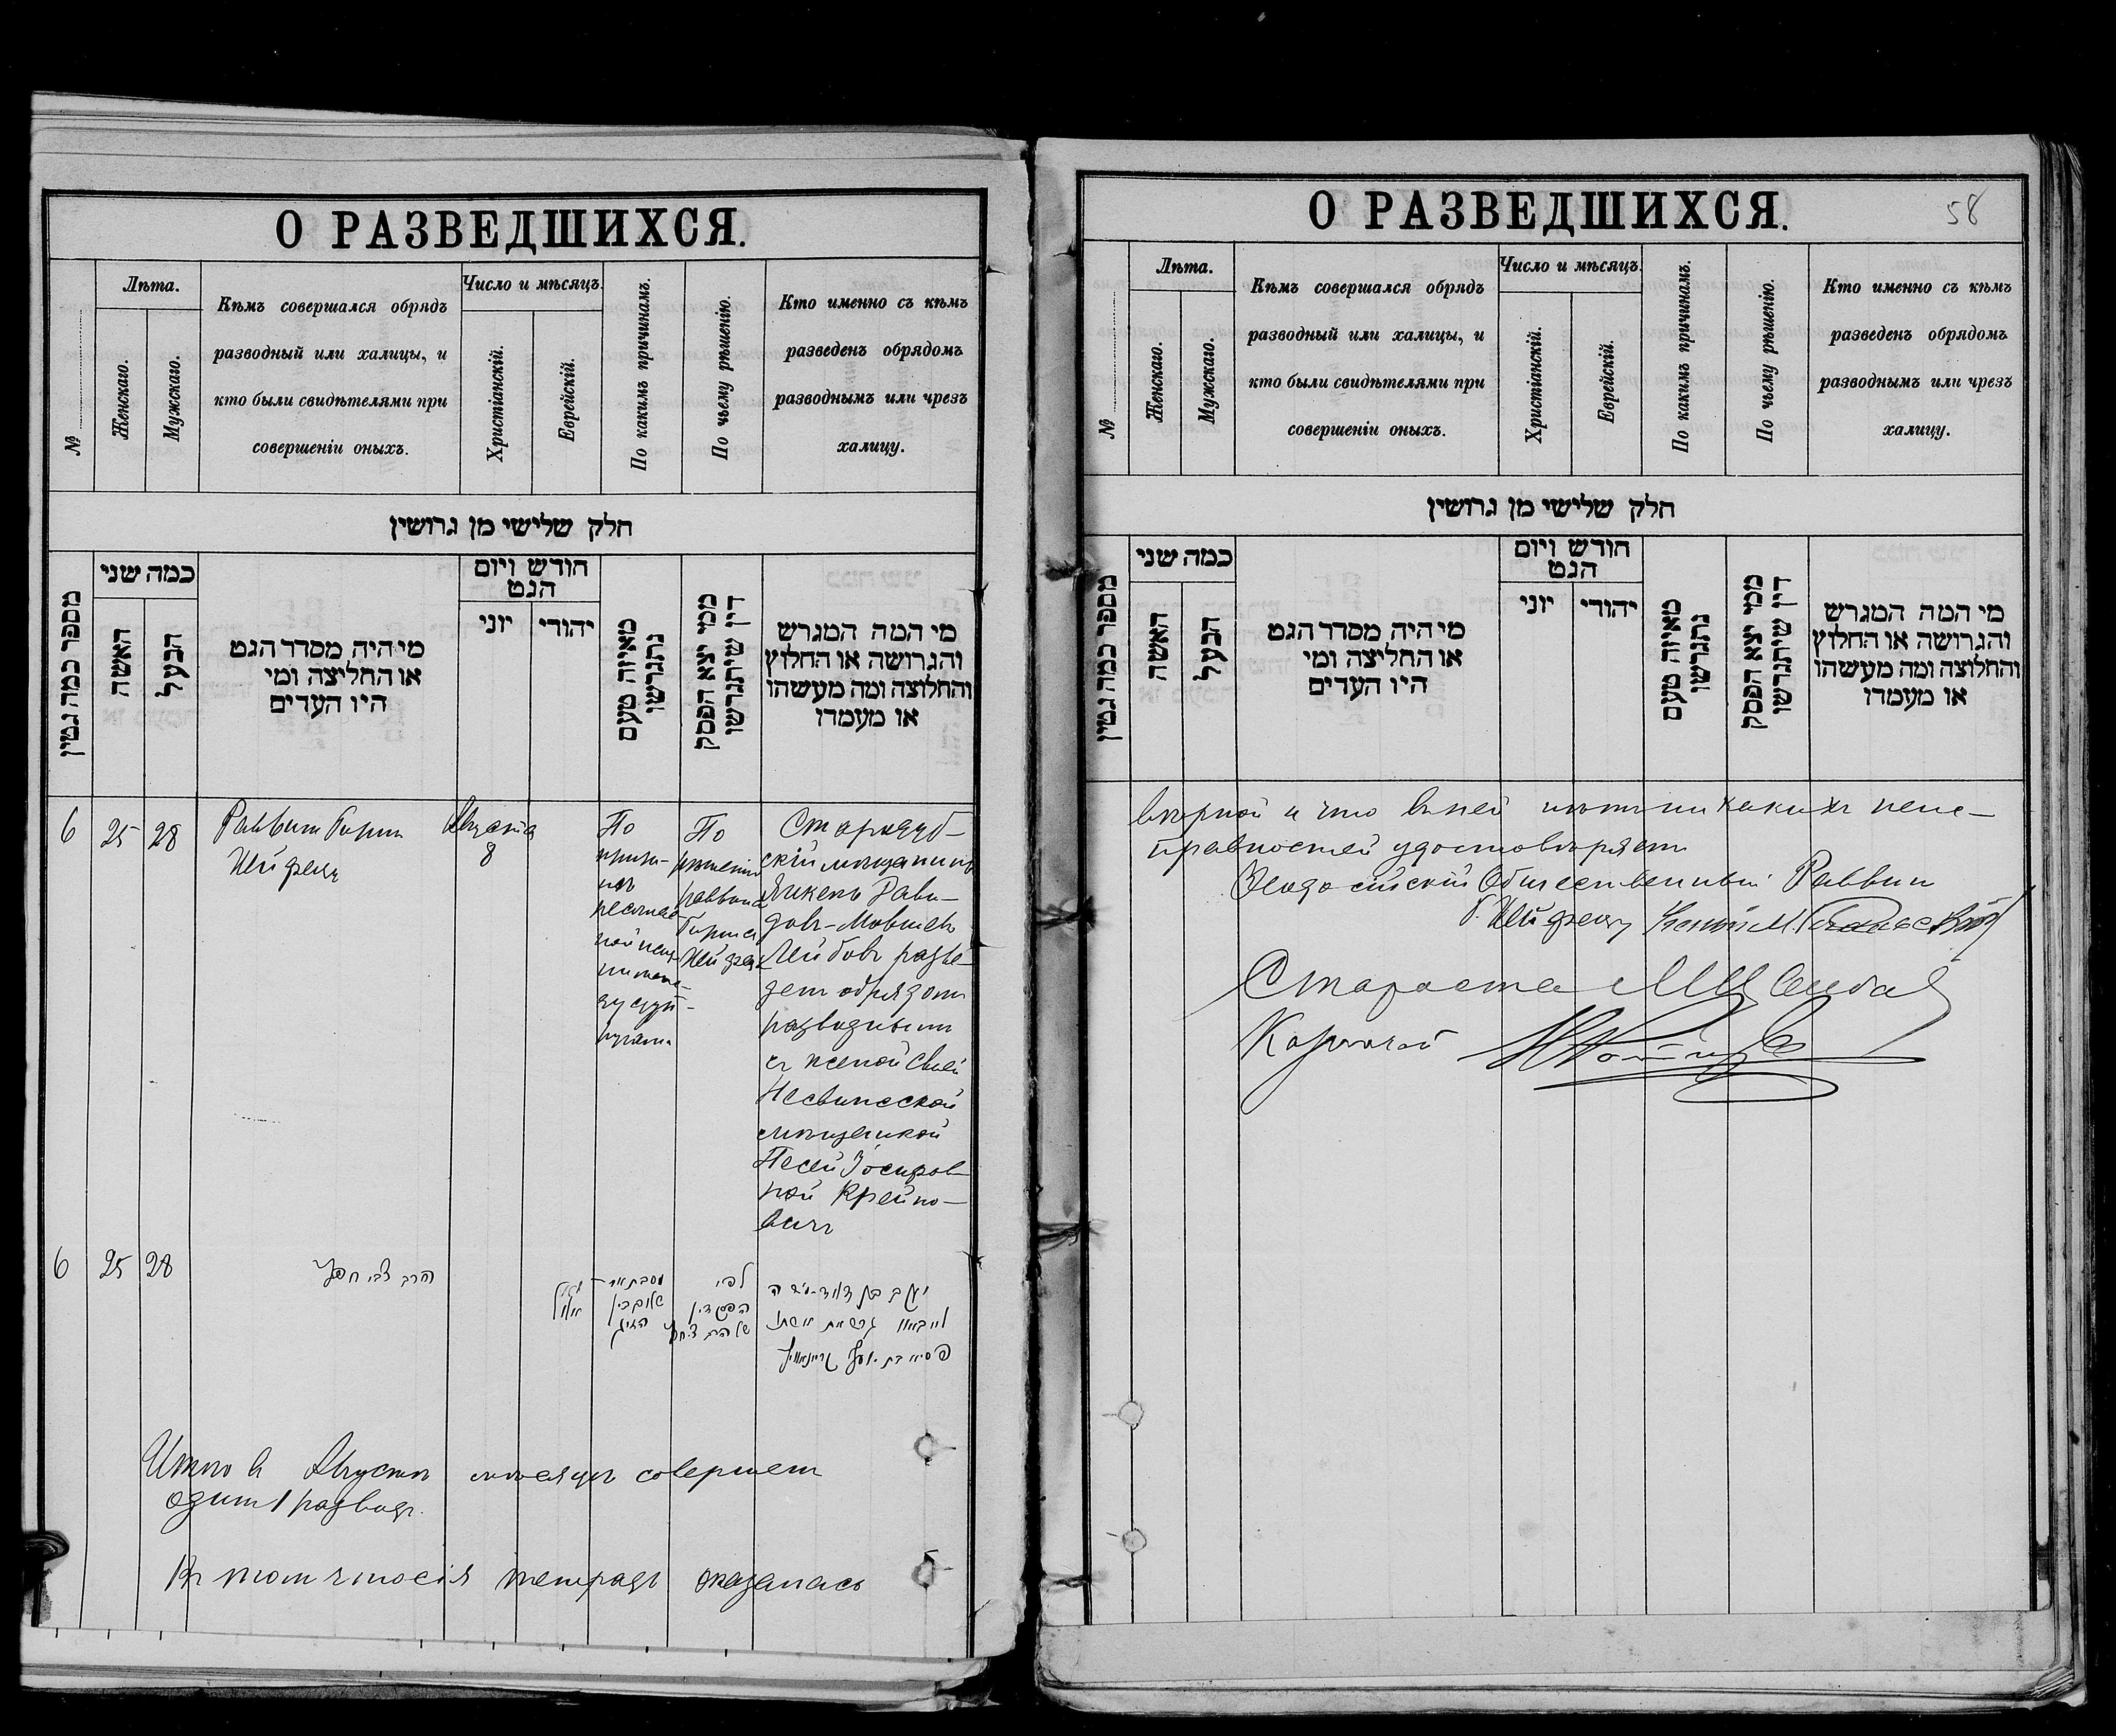 О РАЗВЕДШИХСЯ.
№
Лѣта.
Женскаго.
Мужскаго.
Кѣмъ совершался обрядъ
разводный или халицы, и
кто были свидѣтелями при
совершеніи оныхъ.
Число и мѣсяцъ.
Христіанскій.
Еврейскій.
По какимъ причинамъ.
По чьему рѣшенію.
Кто именно съ кѣмъ
разведенъ обрядомъ
разводнымъ или чрезъ
халицу.
חלק שלישי מן גרושין
מספר כמה גטין
כמה שני
האשה
הבעל
מי היה מסדר הגט
או החליצה ומי
היו העדים
חודש ויום
הגט
יוני
יהודי
מאיזה טעם
נתגרשו
ממי יצא הפסק
דין שיתגרשו
מי המה המגרש
והגרושה או החלוץ
והחלוצה ומה מעשהו
או מעמדו
6
25
28
Раввин Гирш
Хейфец
Августа
8
По
причи-
нѣ
По
рѣшенію
раввина
Гирша
Хейфеца
Стародуб-
скій мѣщанинъ
Янкель Дави-
дов-Мовшев
Лейбов разве-
ден обрядом
разводным
с женой своей
Несвижской
мѣщанкой
Песей Іосифов-
ной Крейно-
вич
6
25
28
הרב צבי חפץ
לפי
הפסק דין
של הרב צ. חפץ
יעקב בן דוד-משה
לייבאוו גרש את אשתו
פסיא בת יוסף
Итого в Августѣ мѣсяцѣ совершен
один 1 развод.
тетрадь оказалась
О РАЗВЕДШИХСЯ.
58
№
Лѣта.
Женскаго.
Мужскаго.
Кѣмъ совершался обрядъ
разводный или халицы, и
кто были свидѣтелями при
совершеніи оныхъ.
Число и мѣсяцъ.
Христіанскій.
Еврейскій.
По какимъ причинамъ.
По чьему рѣшенію.
Кто именно съ кѣмъ
разведенъ обрядомъ
разводнымъ или чрезъ
халицу.
חלק שלישי מן גרושין
מספר כמה גטין
כמה שני
האשה
הבעל
מי היה מסדר הגט
או החליצה ומי
היו העדים
חודש ויום
הגט
יוני
יהודי
מאיזה טעם
נתגרשו
ממי יצא הפסק
דין שיתגרשו
מי המה המגרש
והגרושה או החלוץ
והחלוצה ומה מעשהו
או מעמדו
вѣрной и что в ней нѣт никаких неис-
правностей удостовѣряет
Ѳеодосійскій Общественный Раввин
Г. Хейфец
Староста